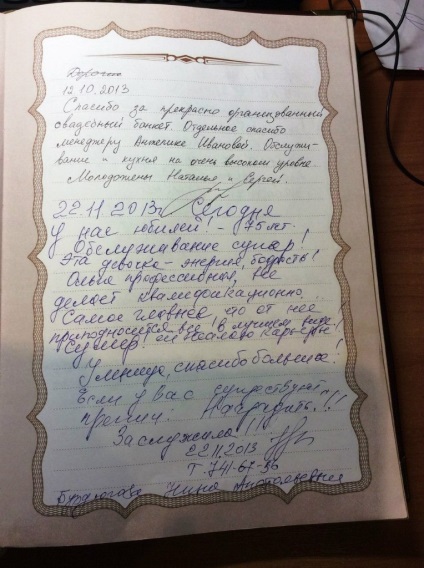 Дорогие
12.10.2013
Спасибо за прекрасно организованный
свадебный банкет. Отдельное спасибо
менеджеру Анжелике Ивановой. Обслужи-
вание и кухня на очень высоком уровне.
Молодожены Наталья и Сергей.
22.11.2013г Сегодня
у нас юбилей! - 75 лет.
Обслуживание супер!
Эта девочка - энергия, бодрость!
профессионал, все
делает квалификационно.
Самое главное, что от нее
преподносится все в лучшем виде!
Супер! ей желаю карьеры!
Умница, спасибо большое!
Если у вас существует
премии! Наградить!!!
Заслужила!!!
22.11.2013
т. 741-62-96
Нина Анатольевна